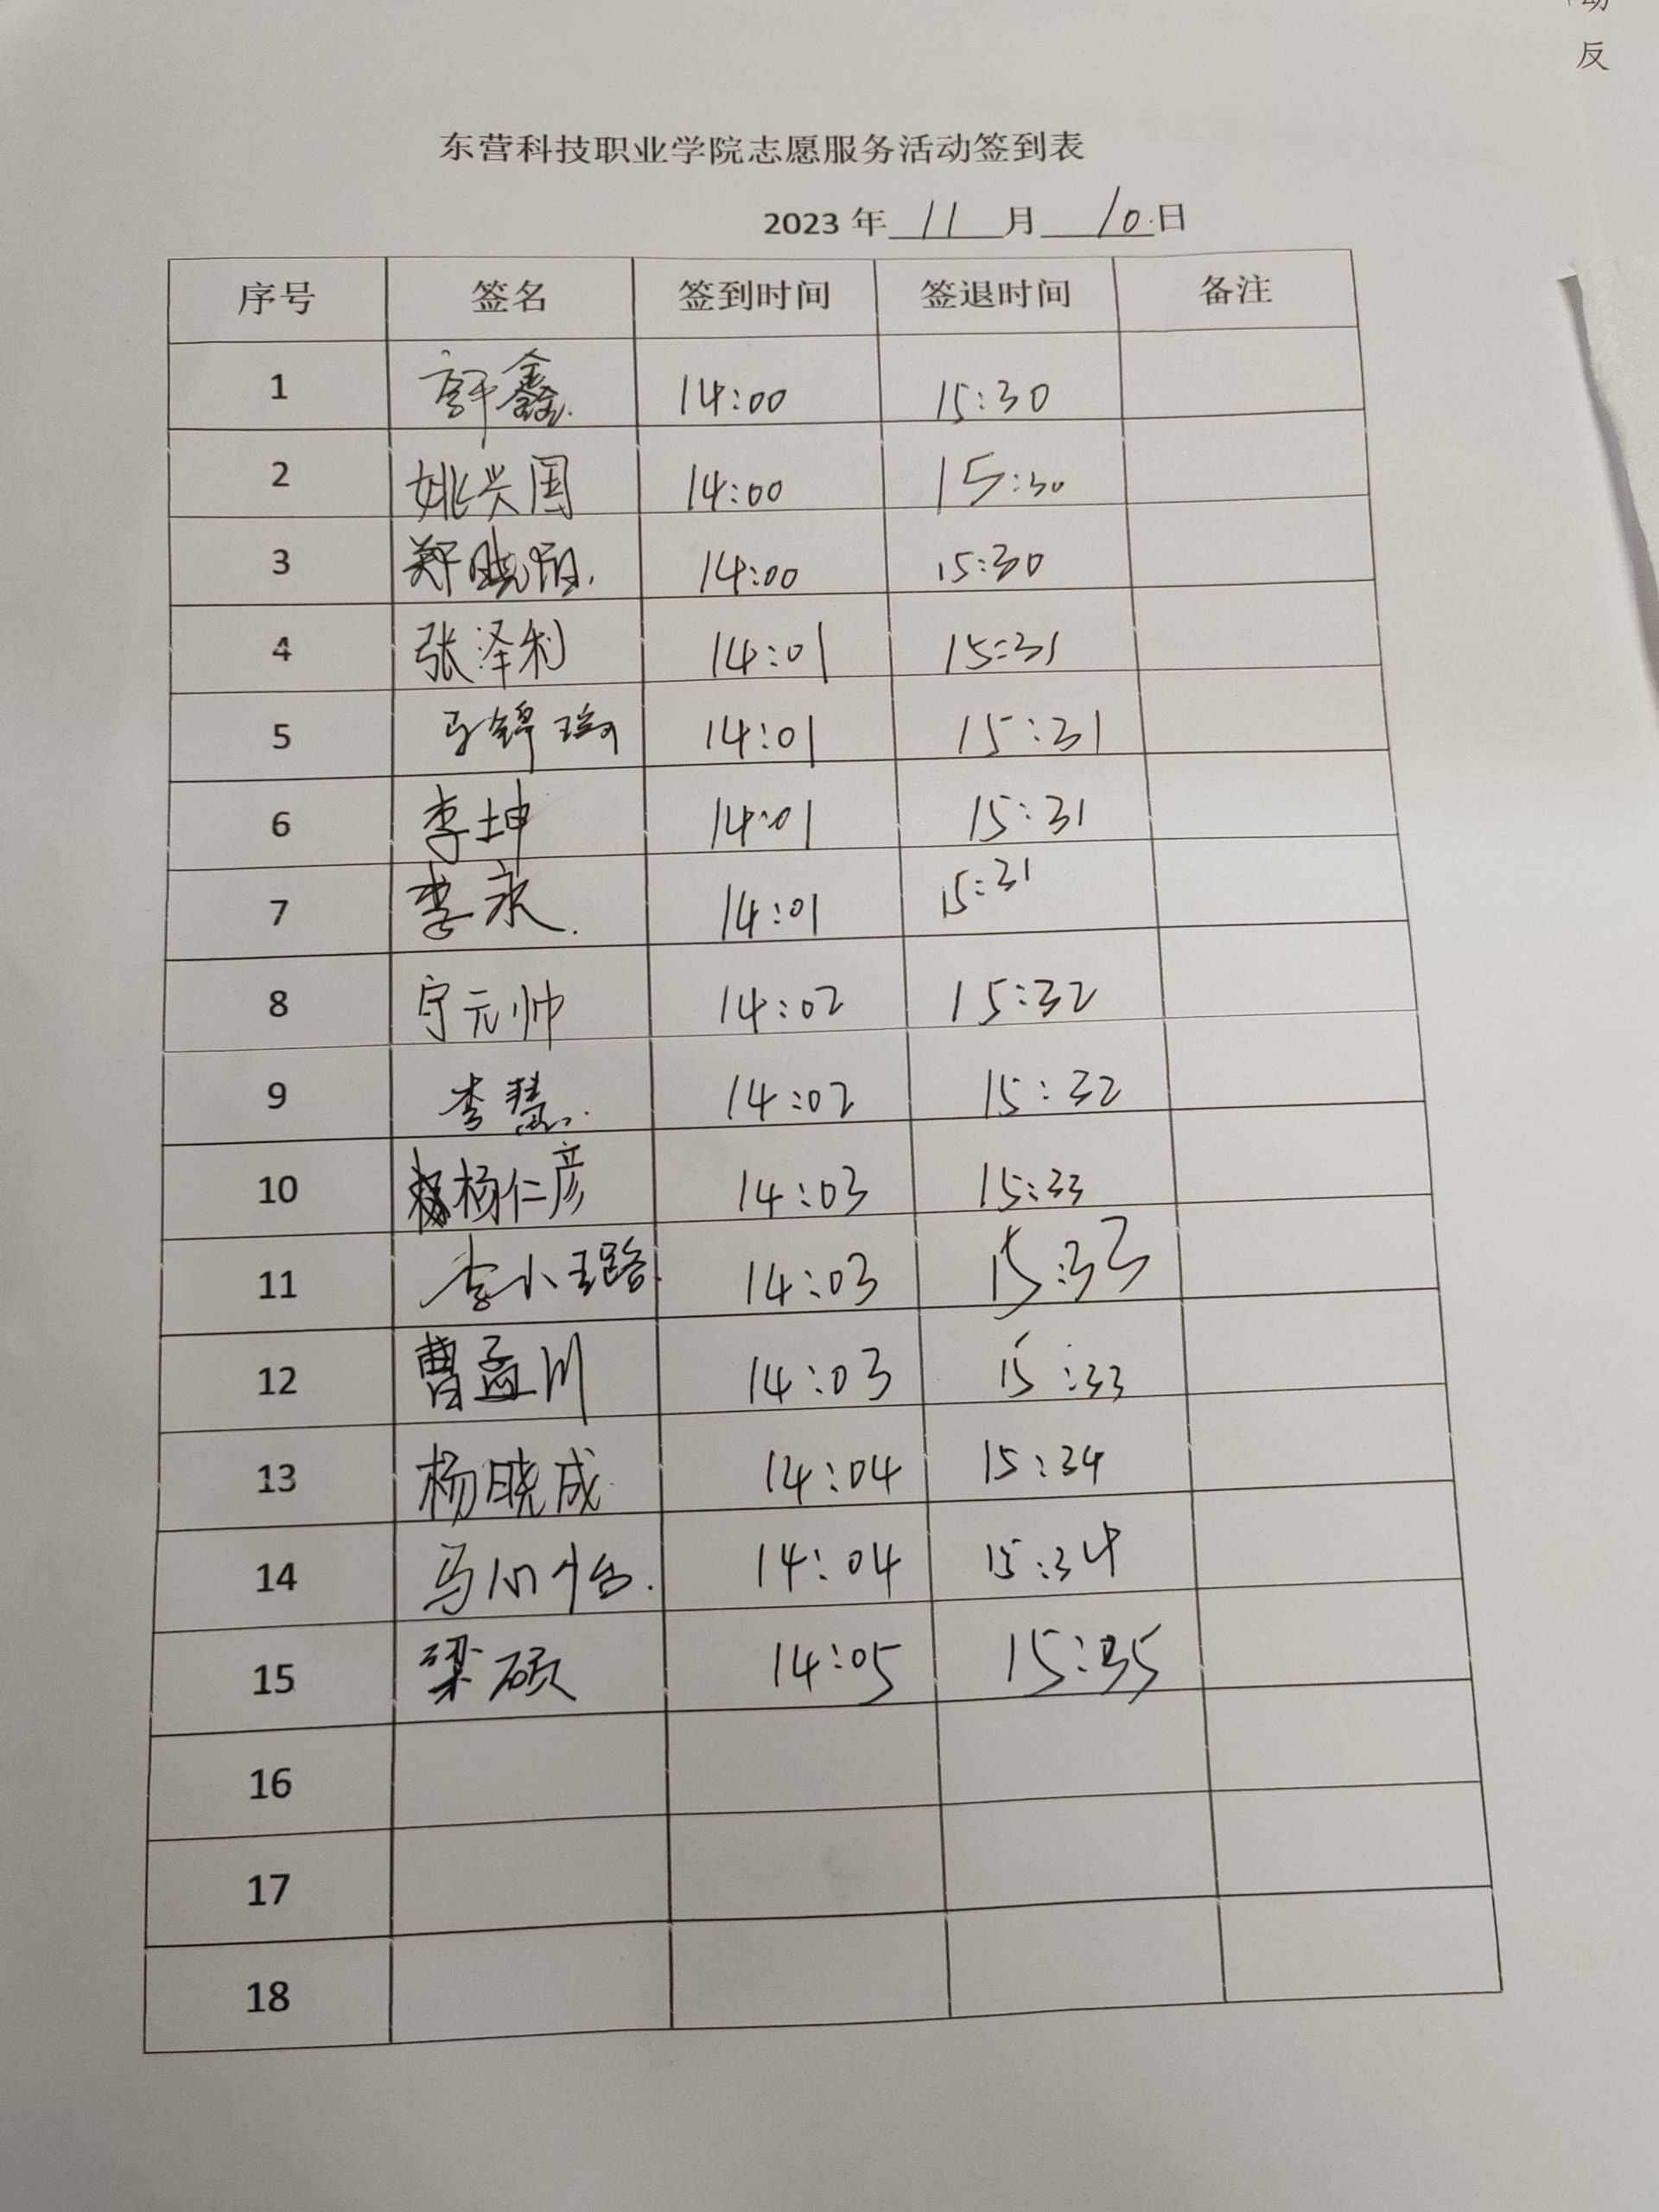 反
东营科技职业学院志愿服务活动签到表
2023 年 11 月 10 日
序号 签名 签到时间 签退时间 备注
1 鑫 14:00 15:30
2 姚兴国 14:00 15:30
3 郑晓 14:00 15:30
4 张泽利 14:01 15:31
5 马锦 14:01 15:31
6 李坤 14:01 15:31
7 李永 14:01 15:31
8 宁元帅 14:02 15:32
9 李慧 14:02 15:32
10 杨仁彦 14:03 15:33
11 李小璐 14:03 15:33
12 曹孟川 14:03 15:33
13 杨晓成 14:04 15:34
14 马心怡 14:04 15:34
15 梁硕 14:05 15:35
16
17
18